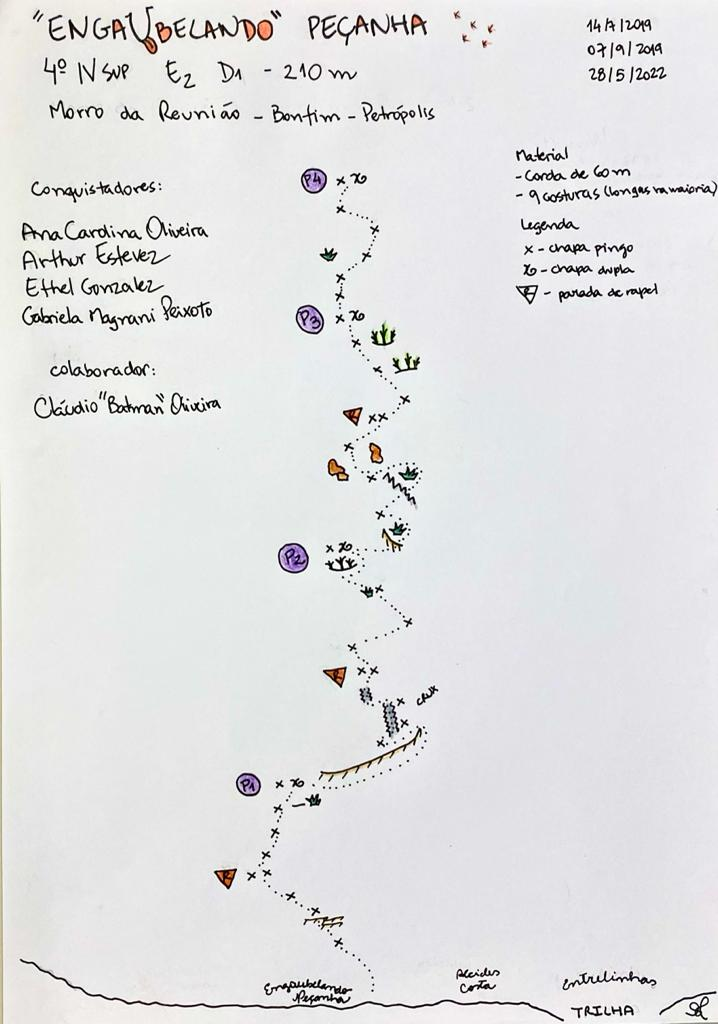 "ENGAUBELANDO" PEÇANHA
4º IVSUP E2 D1 - 210m
Morro da Reunião - Bonfim - Petrópolis
14/7/2019
07/9/2019
28/5/2022
Material
- Corda de 60m
- 9 costuras (longas na maioria)
Legenda
x - chapa pingo
- chapa dupla
R - parada de rapel
Conquistadores:
Ana Carolina Oliveira
Arthur Estevez
Ethel Gonzalez
Gabriela Magrani Peixoto
colaborador:
Cláudio "Batman" Oliveira
P4
P3
R
P2
R
CRUX
P1
R
Engaubelando
Peçanha
Alcides
Costa
Entrelinhas
TRILHA